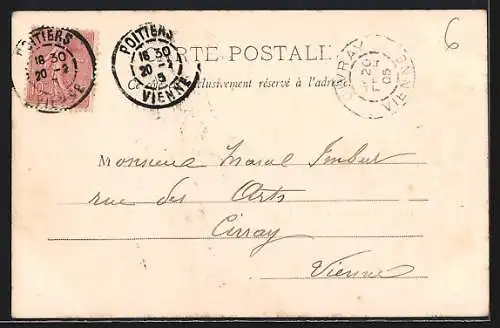 POITIERS
18 30
20 -2
VIENNE
POITIERS
18 30
20 -2
05
VIENNE
CARTE POSTALE
Ce côté est exclusivement réservé à l'adresse
CIVRAY
20
FEVR
05
VIENNE
6
Monsieur Marcel Imbert
rue des Arts
Civray
Vienne